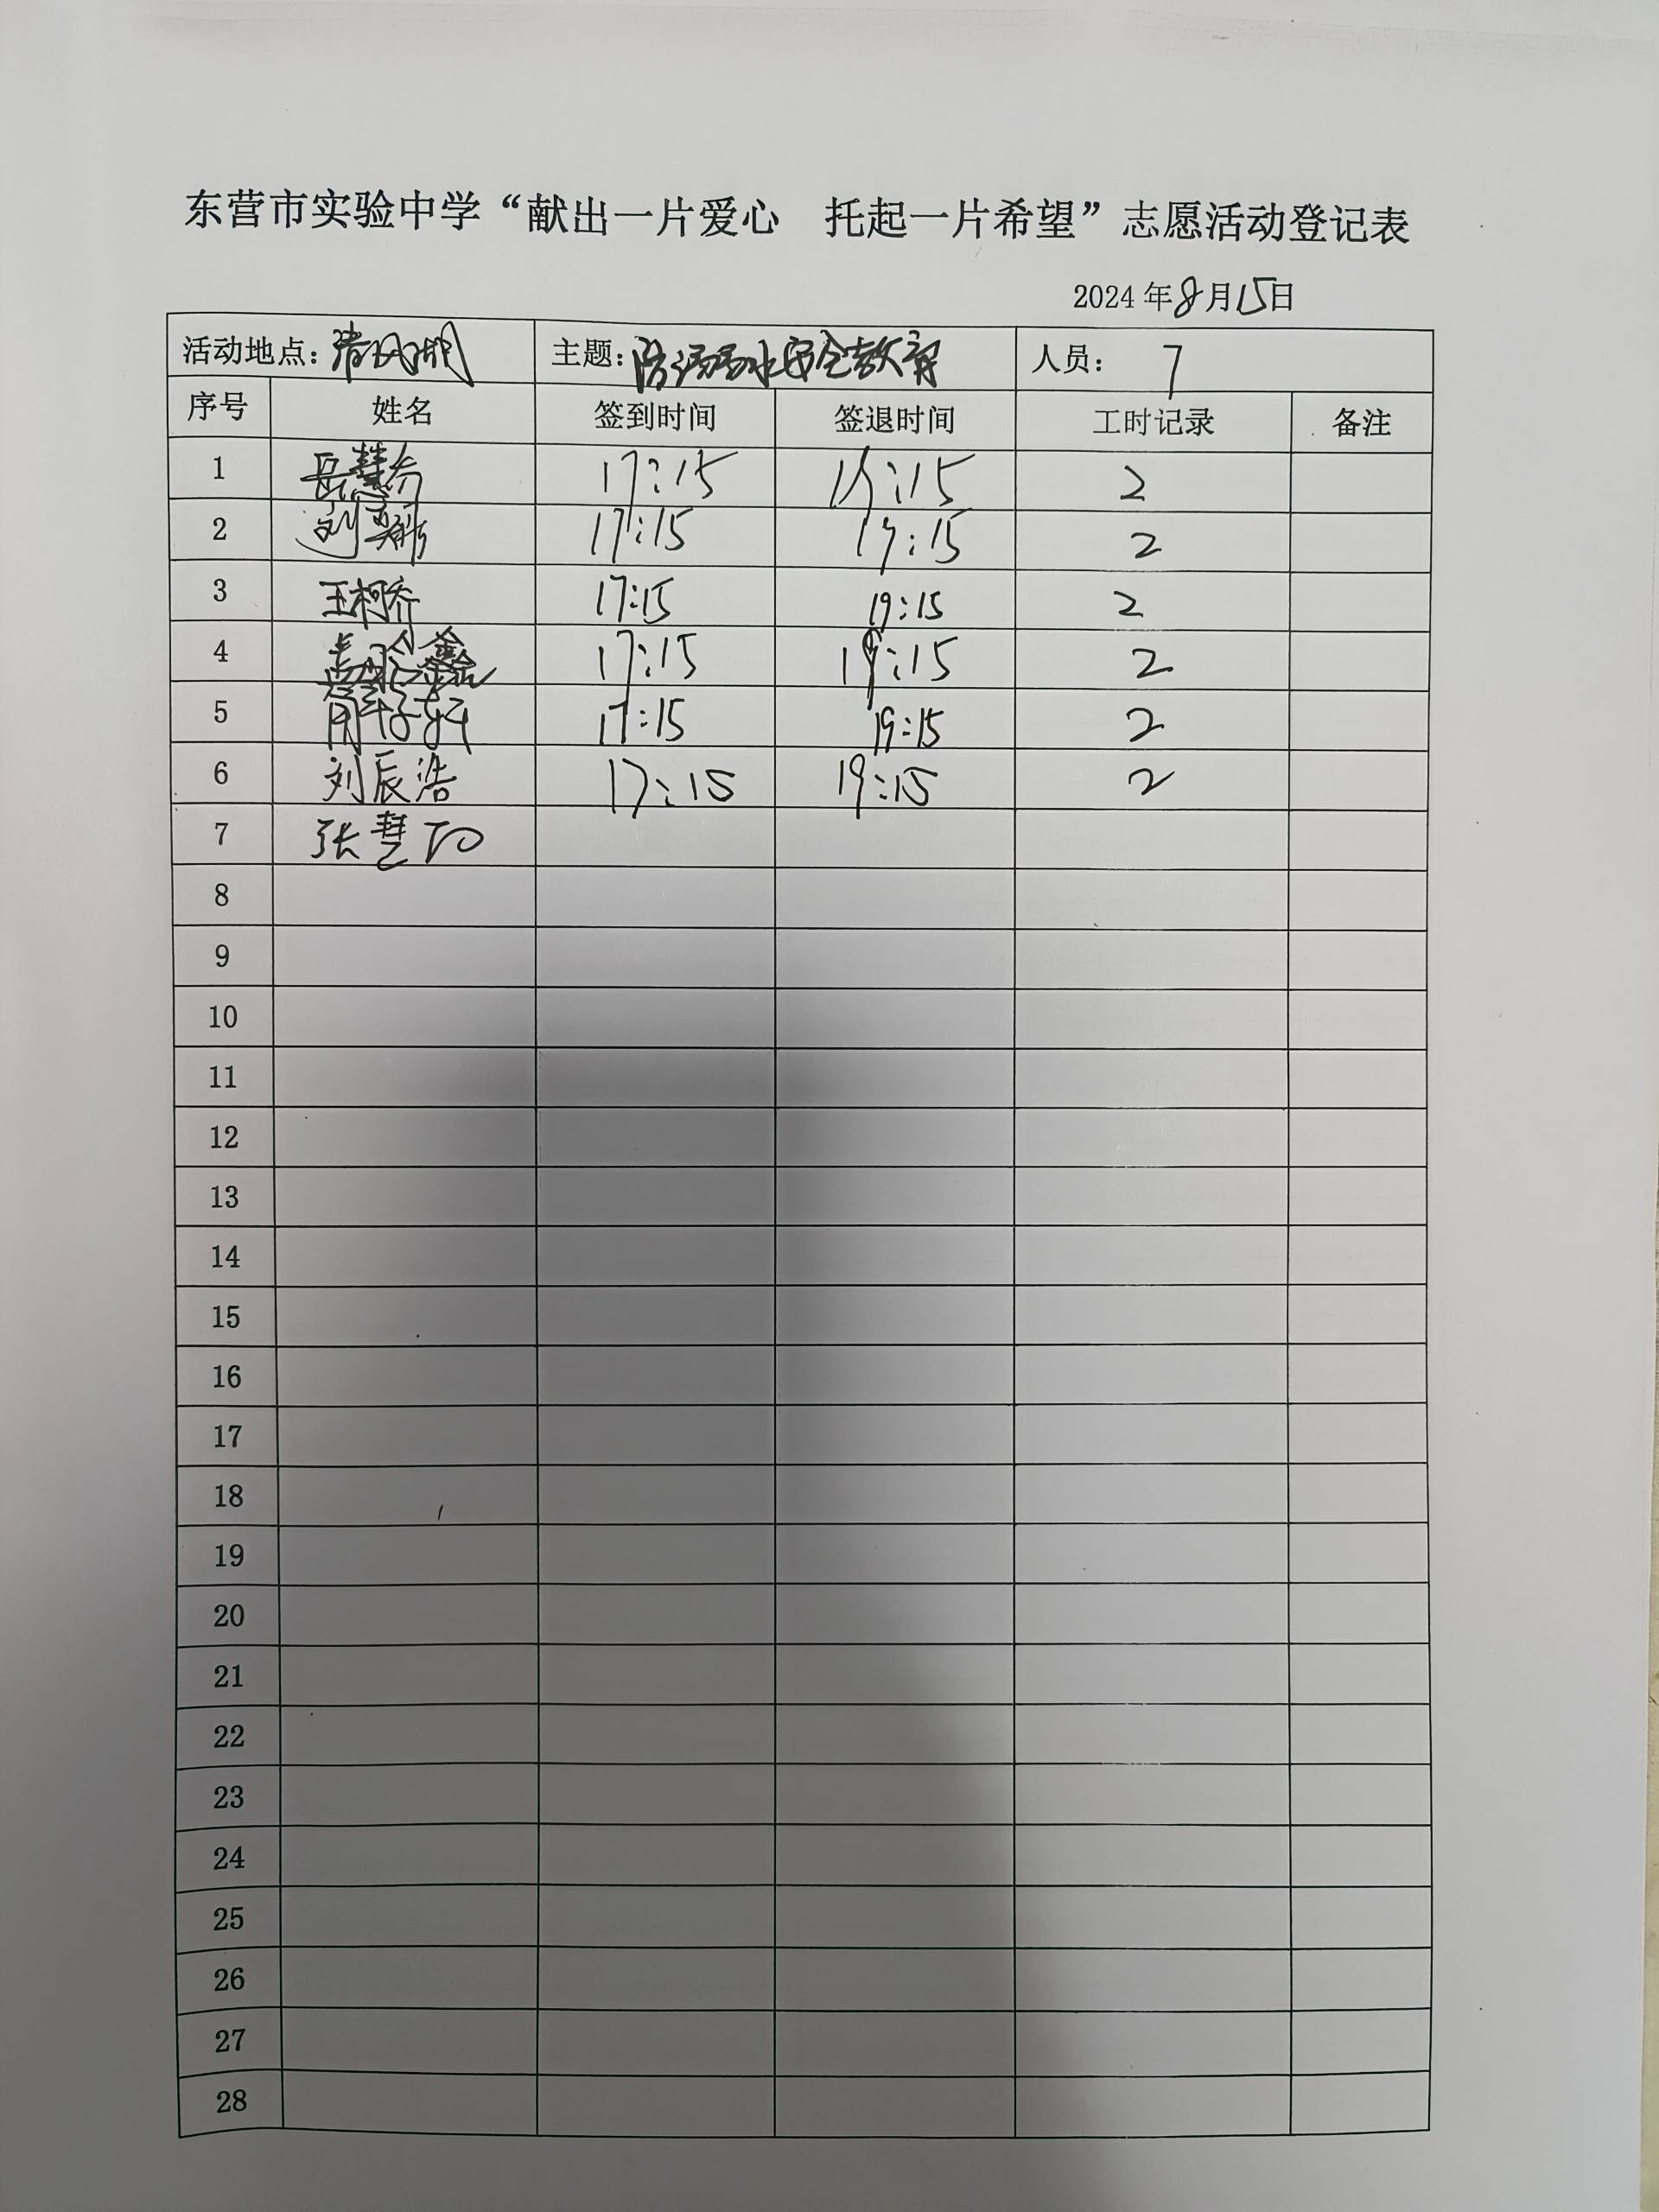 东营市实验中学“献出一片爱心 托起一片希望”志愿活动登记表
2024年8月15日
活动地点：清风湖 主题：防溺水安全教育 人员：7
序号 姓名 签到时间 签退时间 工时记录 备注
1 岳慧 17:15 19:15 2
2 刘 17:15 19:15 2
3 王柯乔 17:15 19:15 2
4 鑫 17:15 19:15 2
5 周子轩 17:15 19:15 2
6 刘辰浩 17:15 19:15 2
7 张慧
8
9
10
11
12
13
14
15
16
17
18
19
20
21
22
23
24
25
26
27
28